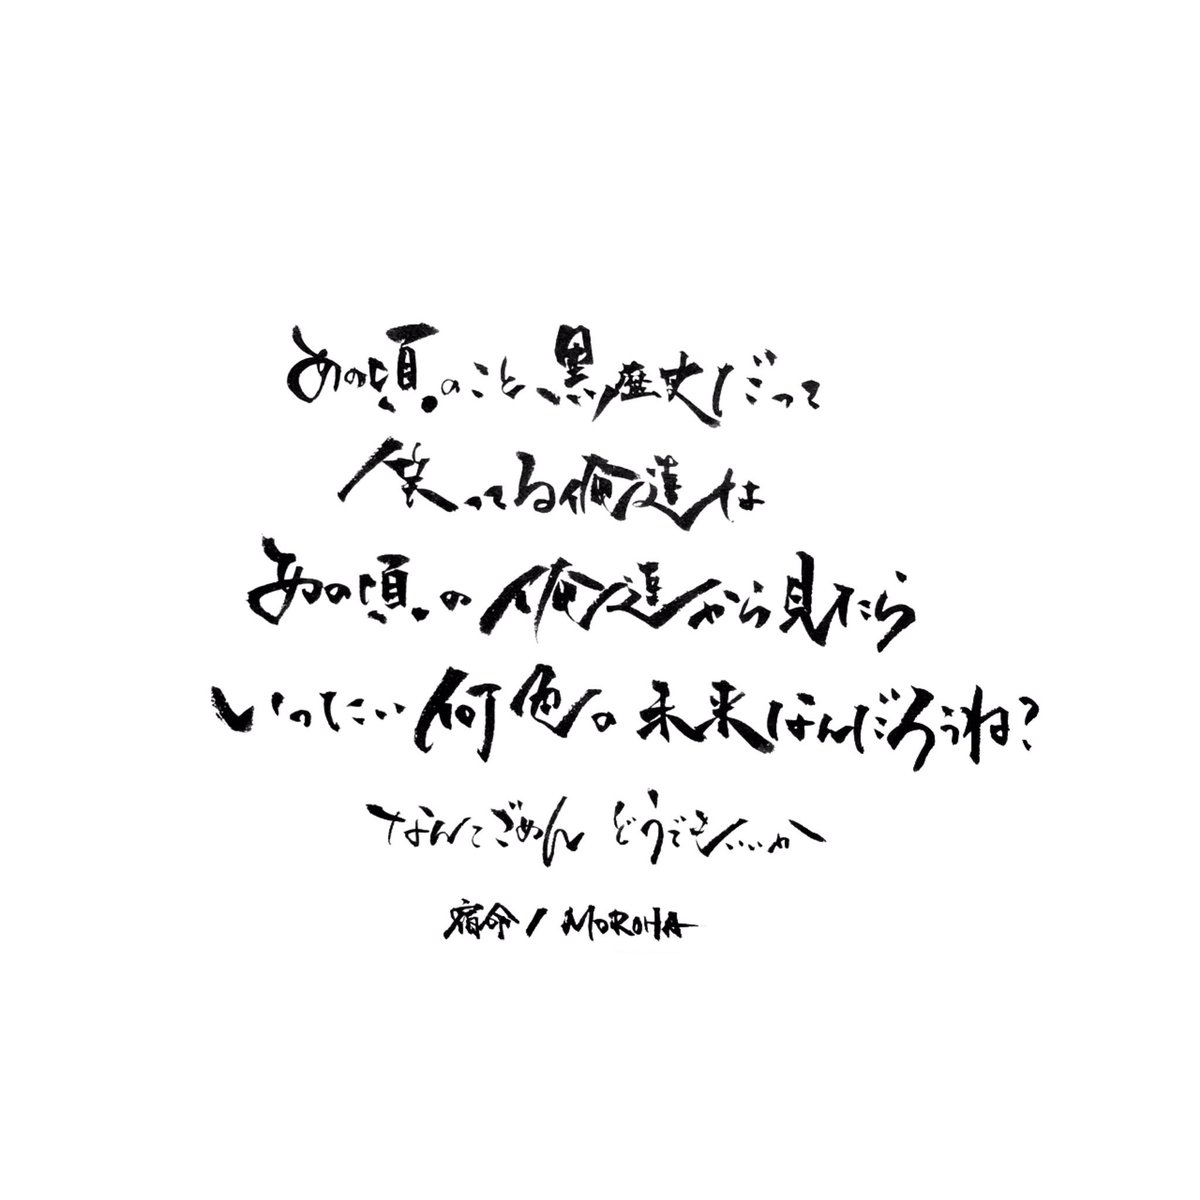 あの頃のこと、黒歴史だって
笑ってる俺達は
あの頃の俺達から見たら
いったい何色の未来なんだろうね？
なんてごめん どうでもいいか
宿命 / MOROHA